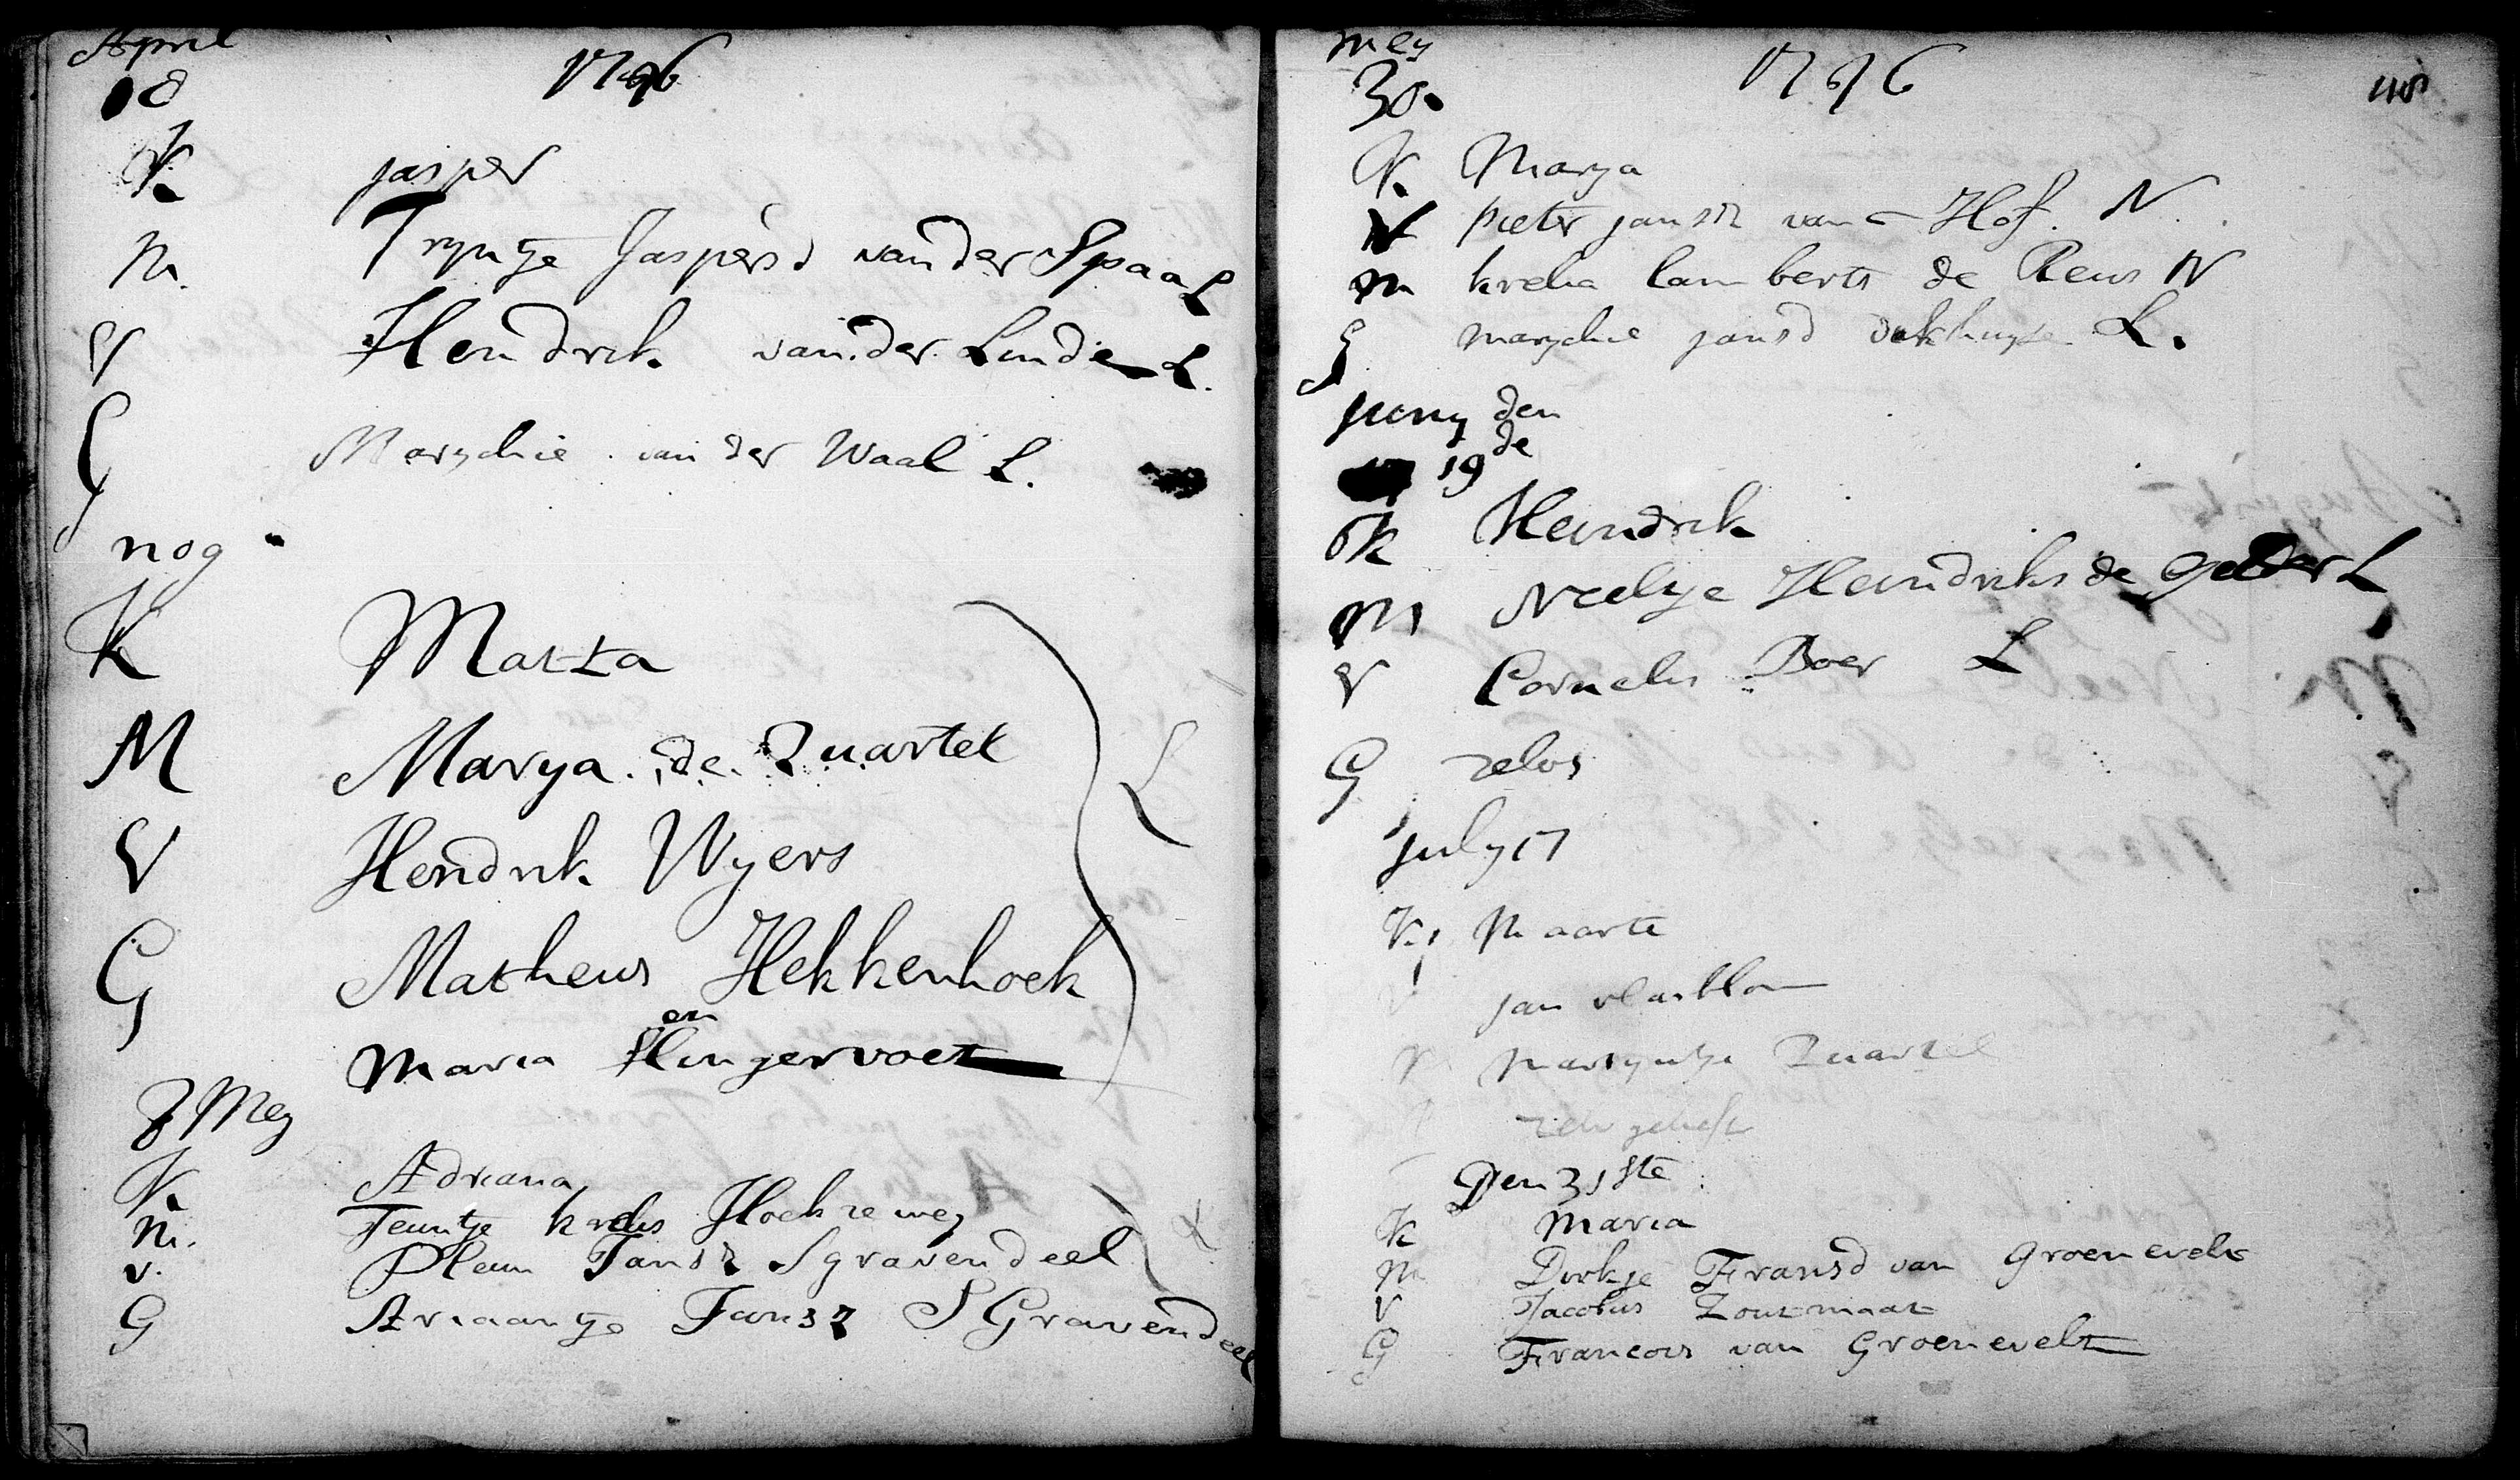 April
18 1796
K jasper
M. Tryntje Jaspersd van der Spaa L
V Hendrik van der Linde L.
G Marychie van der Waal L.
nog
K Matta
M Marya de Quartel
V Hendrik Wyers L
G Matheus Hekkenhoek
en
Maria Slingervoet
8 Mey
K. Adriana
M. Teuntje krelis Hoekseweg
v. Pleun Jansz Sgravendeel L
G Ariaantje Jansz SGravendeel
mey 1796 48
30.
K. Marya
V pieter jansz van Hof. N.
m krelia lamberts de Reus N
G marychie jansd L.
juny den
19de
K Hendrik
M Neeltje Hendriks de Gelder L
V Cornelis Boer L
G zelvs
july 17
K. Maarte
jan vlasblom
M Marijntje Quartel
Den 31ste
K Maria
M Dirkje Fransd van Groenevelt
V Jacobus Zoutmaat
G Francois van Groenevelt